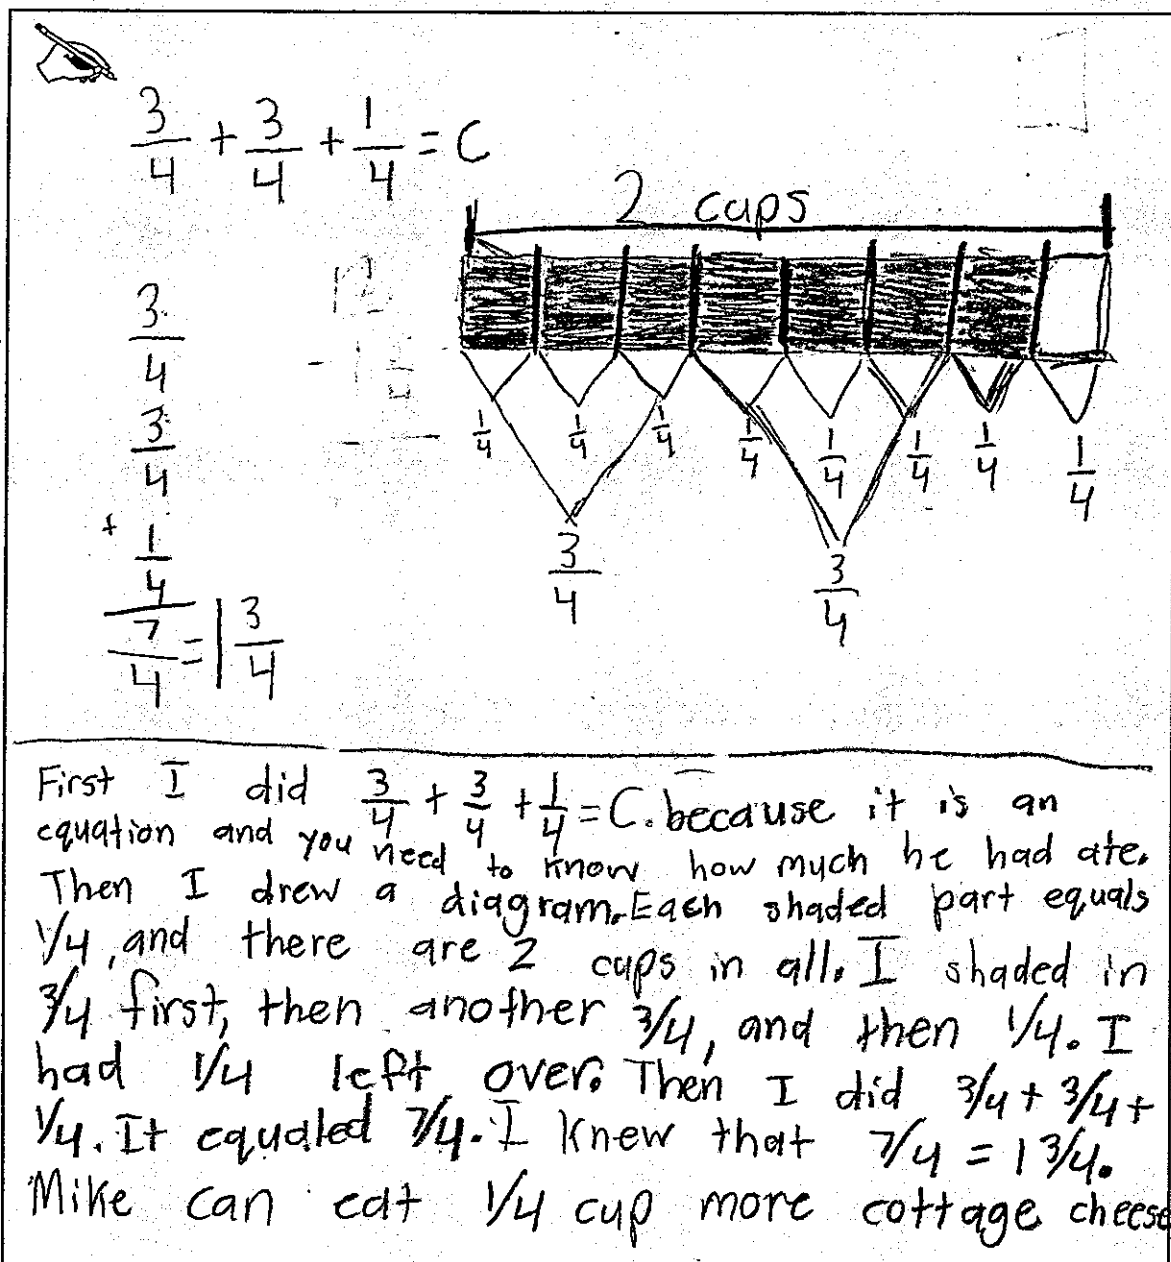 3/4 + 3/4 + 1/4 = C
2 cups
3/4
3/4
+ 1/4
7/4 = 1 3/4
1/4 1/4 1/4 1/4 1/4 1/4 1/4 1/4
3/4 3/4
First I did 3/4 + 3/4 + 1/4 = C. because it is an
equation and you need to know how much he had ate.
Then I drew a diagram. Each shaded part equals
1/4, and there are 2 cups in all. I shaded in
3/4 first, then another 3/4, and then 1/4. I
had 1/4 left over. Then I did 3/4 + 3/4 +
1/4. It equaled 7/4. I knew that 7/4 = 1 3/4.
Mike can eat 1/4 cup more cottage cheese